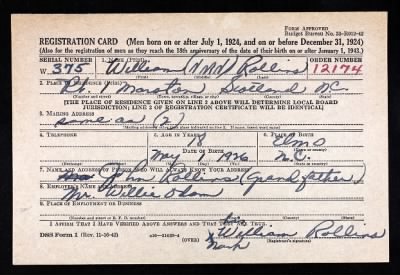 Form Approved
Budget Bureau No. 33-R012-42
REGISTRATION CARD—(Men born on or after July 1, 1924, and on or before December 31, 1924)
(Also for the registration of men as they reach the 18th anniversary of the date of their birth on or after January 1, 1943.)
SERIAL NUMBER 1. NAME (Print) ORDER NUMBER
W 375 William (NMN) Rollins 12174
2. PLACE OF RESIDENCE (Print)
Rt 1 Marston Scotland N.C.
[THE PLACE OF RESIDENCE GIVEN ON LINE 2 ABOVE WILL DETERMINE LOCAL BOARD
JURISDICTION; LINE 2 OF REGISTRATION CERTIFICATE WILL BE IDENTICAL]
3. MAILING ADDRESS
same as (2)
4. TELEPHONE 5. AGE IN YEARS 6. PLACE OF BIRTH
Elmo
DATE OF BIRTH
May 1926 N.C.
7. NAME AND ADDRESS OF PERSON WHO WILL ALWAYS KNOW YOUR ADDRESS
John Rollins (Grandfather)
8. EMPLOYER'S NAME AND ADDRESS
Mr. Willie Odom
9. PLACE OF EMPLOYMENT OR BUSINESS
I AFFIRM THAT I HAVE VERIFIED ABOVE ANSWERS AND THAT THEY ARE TRUE.
William Rollins
DSS Form 1 (Rev. 11-16-42) (OVER) (Registrant's signature)
mark